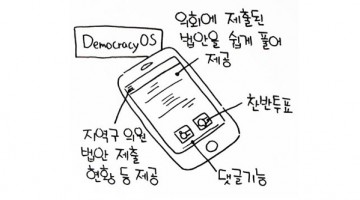 DemocracyOS
의회에 제출된
법안을 쉽게 풀어
제공
찬반투표
댓글기능
지역구 의원
법안 제출
현황 등 제공